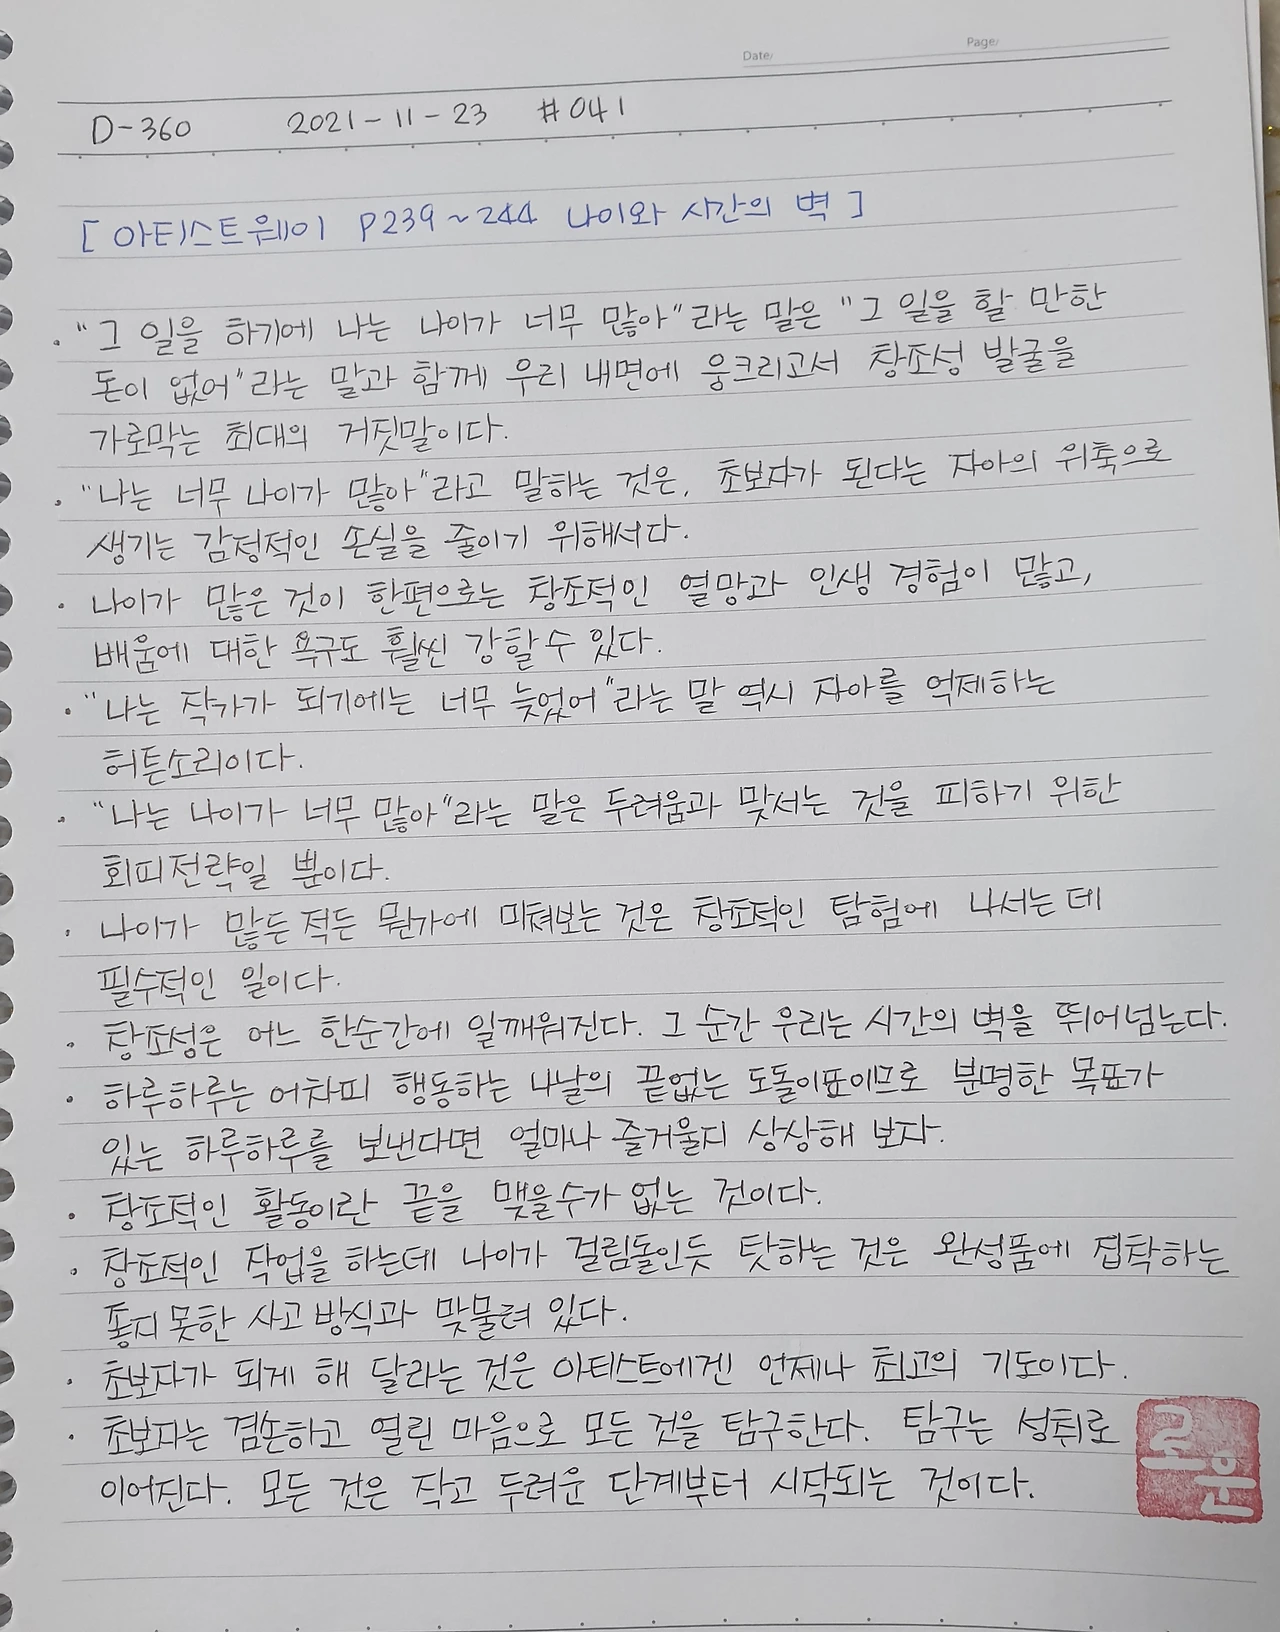 Date/
Page/
D-360 2021-11-23 #041
[ 아티스트웨이 P239~244 나이와 시간의 벽 ]
· "그 일을 하기에 나는 나이가 너무 많아"라는 말은 "그 일을 할 만한
돈이 없어"라는 말과 함께 우리 내면에 웅크리고서 창조성 발굴을
가로막는 최대의 거짓말이다.
· "나는 너무 나이가 많아"라고 말하는 것은, 초보자가 된다는 자아의 위축으로
생기는 감정적인 손실을 줄이기 위해서다.
· 나이가 많은 것이 한편으로는 창조적인 열망과 인생 경험이 많고,
배움에 대한 욕구도 훨씬 강할 수 있다.
· "나는 작가가 되기에는 너무 늦었어"라는 말 역시 자아를 억제하는
허튼소리이다.
· "나는 나이가 너무 많아"라는 말은 두려움과 맞서는 것을 피하기 위한
회피전략일 뿐이다.
· 나이가 많든 적든 뭔가에 미쳐보는 것은 창조적인 탐험에 나서는 데
필수적인 일이다.
· 창조성은 어느 한순간에 일깨워진다. 그 순간 우리는 시간의 벽을 뛰어넘는다.
· 하루하루는 어차피 행동하는 나날의 끝없는 도돌이표이므로 분명한 목표가
있는 하루하루를 보낸다면 얼마나 즐거울지 상상해 보자.
· 창조적인 활동이란 끝을 맺을 수가 없는 것이다.
· 창조적인 작업을 하는데 나이가 걸림돌인듯 탓하는 것은 완성품에 집착하는
좋지 못한 사고 방식과 맞물려 있다.
· 초보자가 되게 해 달라는 것은 아티스트에겐 언제나 최고의 기도이다.
· 초보자는 겸손하고 열린 마음으로 모든 것을 탐구한다. 탐구는 성취로
이어진다. 모든 것은 작고 두려운 단계부터 시작되는 것이다.